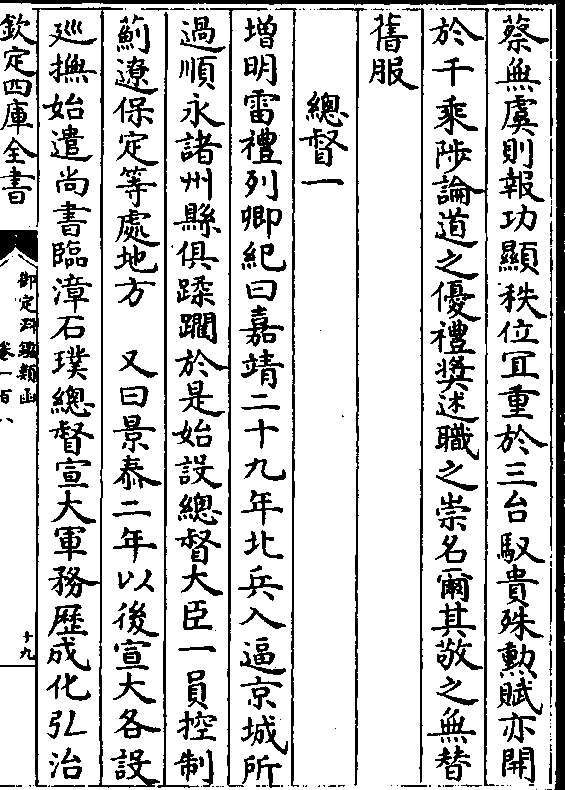 蔡無虞則報功顯秩位冝重於三台馭貴殊勲賦亦開
於千乘陟論道之優禮奬述職之崇名爾其敬之無替
舊服
總督一
增明雷禮列卿紀曰嘉靖二十九年北兵入逼京城所
過順永諸州縣俱蹂躙於是始設總督大臣一員控制
薊遼保定等處地方　又曰景泰二年以後宣大各設
廵撫始遣尚書臨漳石璞總督宣大軍務歴成化弘治
欽定四庫全書
御定淵鑑類函
卷一百八
十九